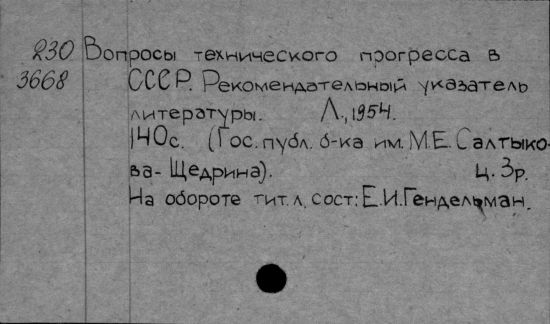 230 Вопросы технического прогресса в
3668 СССР. Рекомендательный указатель
литературы. Л., 1954.
140с. (Гос. публ. б-ка им. М.Е. Салтыко-
ва-Щедрина). ц. 3р.
На обороте тит. л. сост: Е.И. Гендельман.